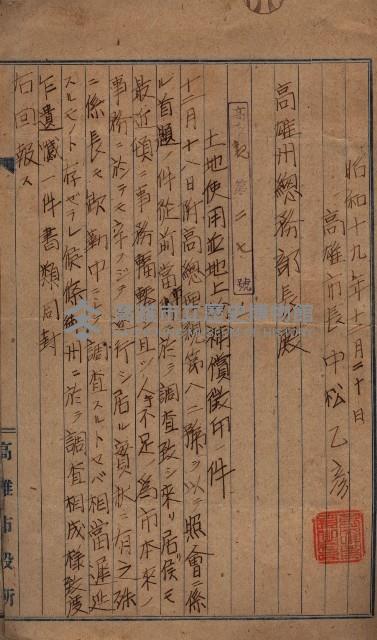 昭和十九年十二月二十日
高雄市長 中松乙彦
高雄州總務部長殿
高 第二七 號
土地使用並地上 補償徵印ノ件
十二月十八日附高總 第八二號ヲ以テ照會ニ係
ル首題ノ件從前當 ニ於テ調査致シ來リ居候モ
最近頃ニ事務輻輳シ且ツ人手不足ノ為市本來ノ
事務ニ於テモ辛フジテ遂行シ居ル實狀ニ有之殊
ニ係長モ欠勤中ニシテ調査スルトセバ相當遲延
スルモノト存ゼラレ候條 州ニ於テ調査相成樣致度
乍遺憾一件書類同封
右回報ス
高雄市役所